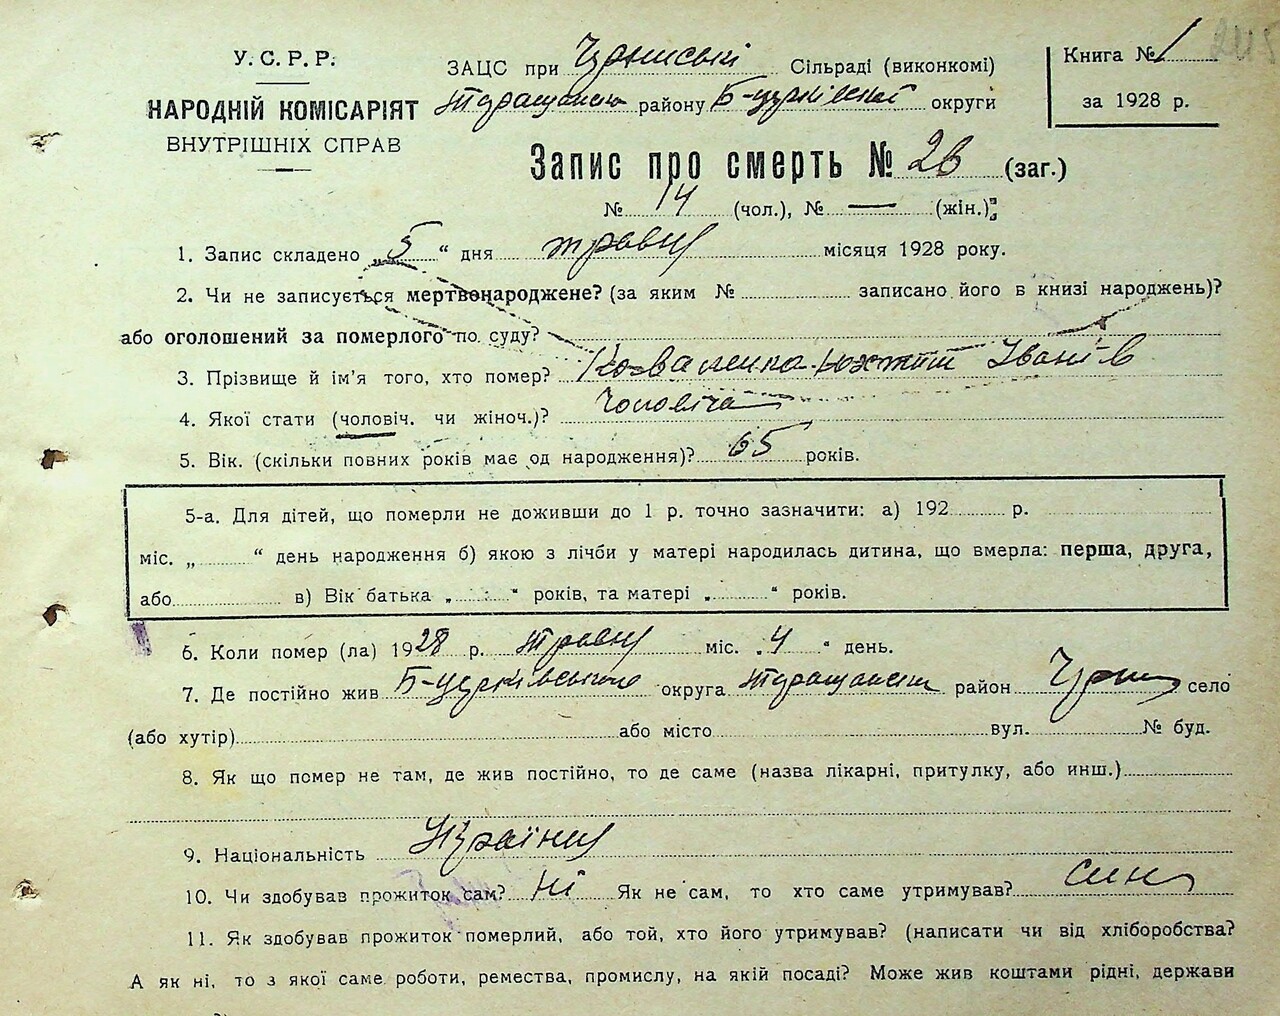 У.С.Р.Р.
НАРОДНІЙ КОМІСАРІЯТ
ВНУТРІШНІХ СПРАВ
ЗАЦС при Сільраді (виконкомі)
району Б-церківської округи
Книга № 1
за 1928 р.
Запис про смерть № 26 (заг.)
№ 14 (чол.), № — (жін.)
1. Запис складено „5" дня травня місяця 1928 року.
2. Чи не записується мертвонароджене? (за яким № записано його в книзі народжень)?
або оголошений за померлого по суду?
3. Прізвище й ім'я того, хто помер?
4. Якої стати (чоловіч. чи жіноч.)? Чоловіча
5. Вік. (скільки повних років має од народження)? 65 років.
5-а. Для дітей, що померли не доживши до 1 р. точно зазначити: а) 192 р.
міс. „ " день народження б) якою з лічби у матері народилась дитина, що вмерла: перша, друга,
або в) Вік батька „ " років, та матері „ " років.
6. Коли помер (ла) 1928 р. травня міс. „4" день.
7. Де постійно жив Б-церківська округа Таращанськ район село
(або хутір) або місто вул. № буд.
8. Як що помер не там, де жив постійно, то де саме (назва лікарні, притулку, або инш.)
9. Національність Українец
10. Чи здобував прожиток сам? Ні Як не сам, то хто саме утримував? син
11. Як здобував прожиток померлий, або той, хто його утримував? (написати чи від хліборобства?
А як ні, то з якої саме роботи, ремества, промислу, на якій посаді? Може жив коштами рідні, держави